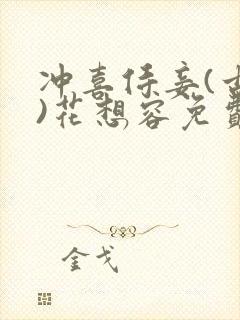 冲喜侍妾(
)花想容免費
金戈